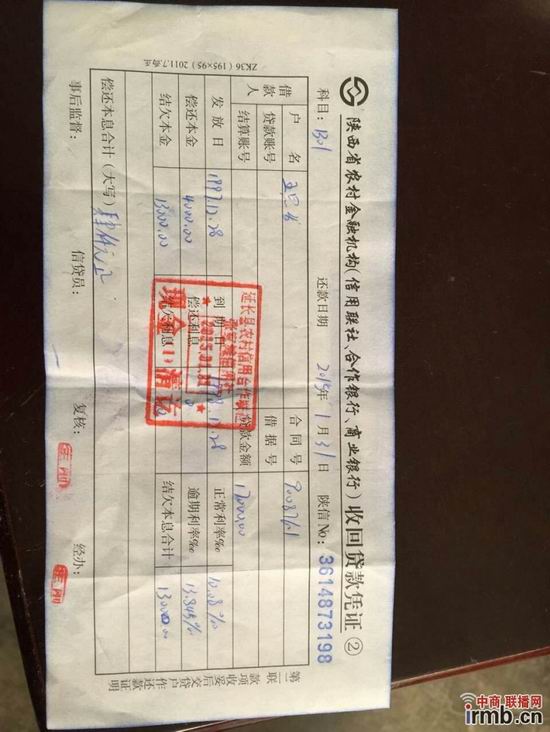 ZK36（195×95）2011.7宝正
陕西省农村金融机构(信用联社、合作银行、商业银行)收回贷款凭证②
科目：1301 还款日期 2015年1月31日 陕信No: 3614873198
借款人
户名
贷款账号
结算账号
合同号 9008761
借据号
发放日 1997.12.28
到期日
贷款金额 17000.00
正常利率‰ 10.08%
偿还本金 4000.00
偿还利息
逾期利率‰ 13.845%
结欠本金 13000.00
结欠利息
结欠本息合计 13000.00
偿还本息合计（大写）肆仟元正
事后监督： 信贷员： 复核： 经办：
第二联 款项收妥后交户作还款证明
延长县农村信用合作联社
2015.01.31
现金
中商·联播网
irmb.cn